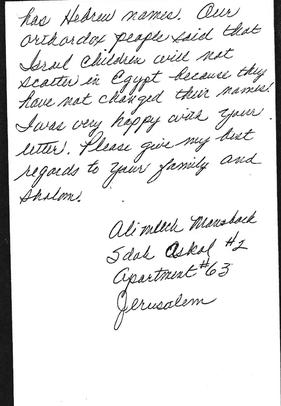 has Hebrew names. Our
orthordox people said that
Israel Children will not
scatter in Egypt because they
have not changed their names!
I was very happy with your
letter. Please give my best
regards to your family and
Shalom.
Alimlech Mansback
Sdah Askol #2
Apartment #63
Jerusalem